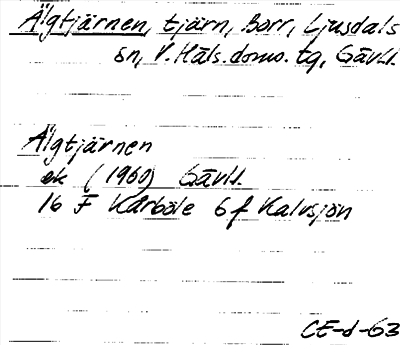 Älgtjärnen, tjärn, Barr, Ljusdals
sn, V. Häls. doms. tg, Gävl.
Älgtjärnen
ek (1960) Gävl.
16 F Kårböle 6f Kalvsjön
CE-d-63